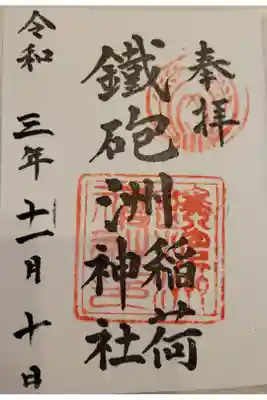 奉拝
鐵砲洲稲荷
神社
令和 三年 十一月 十日